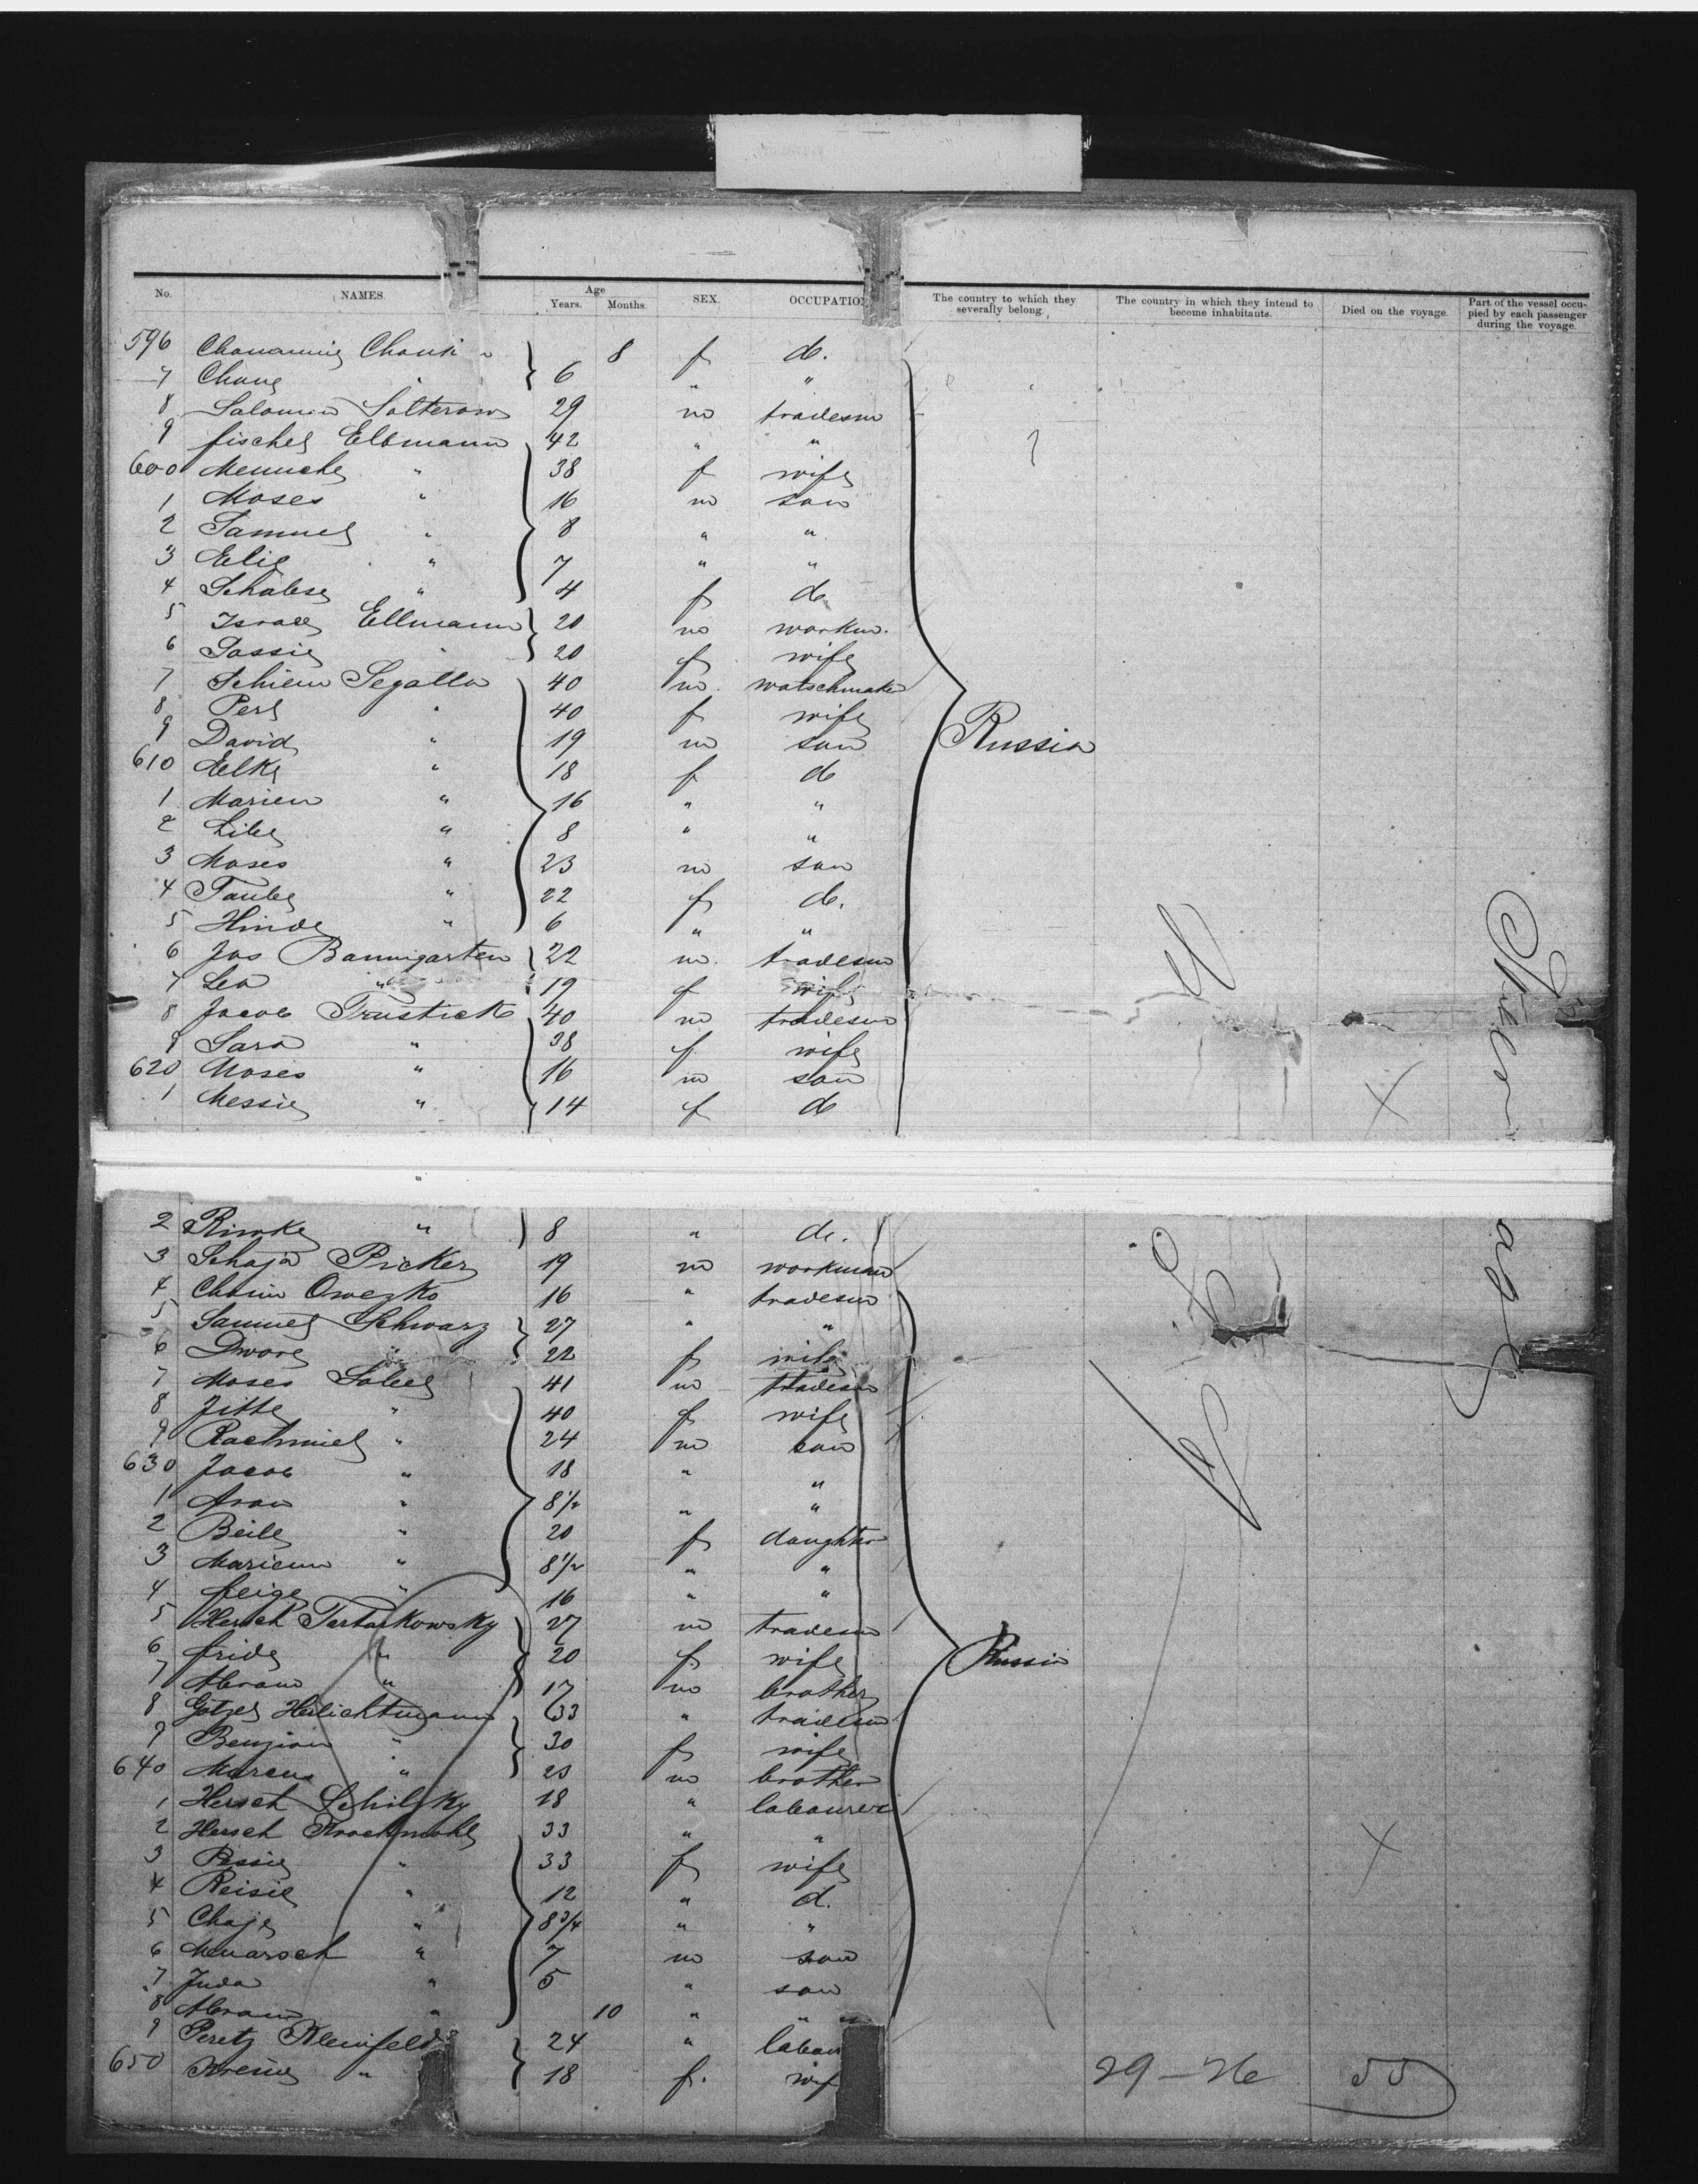 No. NAMES. Age Years. Months. SEX. OCCUPATION The country to which they severally belong. The country in which they intend to become inhabitants. Died on the voyage. Part of the vessel occupied by each passenger during the voyage.
596 8 f d.
7 Chane " 6 " "
8 Salomon Solterow 29 m tradesm
9 fischel Ellmann 42 " "
600 Menuche " 38 f wife
1 Moses " 16 m son
2 Samuel " 8 " "
3 Elie " 7 " "
4 " 4 f d.
5 Israel Ellmann 20 m workm.
6 Tassie " 20 f wife
7 Schiem Segalla 40 m. watschmake
8 Perl " 40 f wife
9 David " 19 m son Russia
610 Elke " 18 f d
1 Mariem " 16 " "
2 Libe " 8 " "
3 Moses " 23 m son
4 Taube " 22 f d.
5 Hinde " 6 " "
6 Jos Baumgarten 22 m. tradesm
7 Lea " 19 f wife
8 Jacob Trustick 40 m tradesm
9 Sara " 38 f wife
620 Moses " 16 m son
1 Messie " 14 f d
2 Rimke " 8 " d.
3 Schaja Picker 19 m workman
4 Chaim Owezko 16 " tradesm
5 Samuel Schwarz 27 " "
6 Dwore " 22 f wife
7 Moses Sobel 41 m tradesm
8 Jitte " 40 f wife
9 Rachmiel " 24 m son
630 Jacob " 18 " "
1 Aron " 8 1/2 " "
2 Beile " 20 f daughter
3 Mariem " 8 1/2 " "
4 feige " 16 " "
5 Hersch Tartarkowsky 27 m tradesm
6 fride " 20 f wife Russia
7 Abram " 17 m brother
8 Götzel Heilichtmann 33 " tradesm
9 Benzion " 30 f wife
640 Marcus " 23 m brother
1 Hersch Schilsky 18 " labourer
2 Hersch Krochmahl 33 " "
3 Pessie " 33 f wife
4 Reisie " 12 " d.
5 Chaje " 8 3/4 " "
6 " 7 m son
7 Juda " 5 " son
8 Abram " 10 " " "
9 Peretz Kleinfeld 24 " labou
650 Kreine " 18 f. wif
29 – 26 55